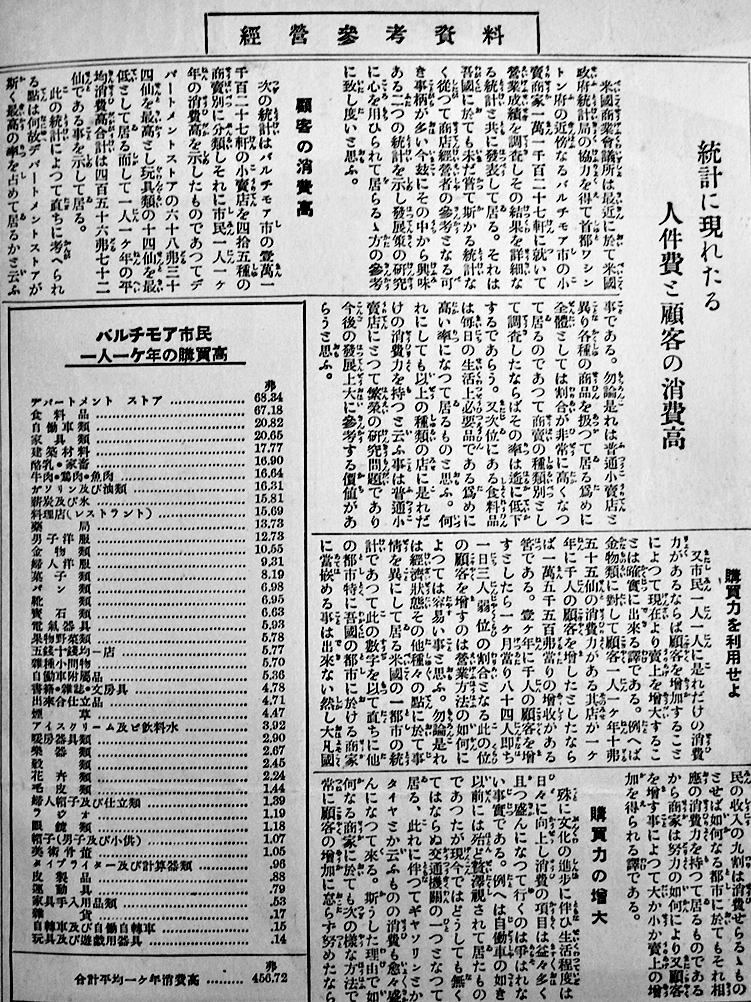 經營參考資料
統計に現れたる
人件費と顧客の消費高
米國商業會議所は最近に於て米國
政府統計局の協力を得て首都ワシン
トン府の近傍なるバルチモア市の小
賣商家一萬一千百二十七軒に就いて
營業成績を調査しその結果を詳細な
る統計と共に發表して居る。それは
吾國に於ても未だ嘗て斯かる統計な
く從つて商店經營者の參考となる可
き事柄が多い今玆にその中から興味
ある二つの統計を示し發展策の研究
に心を用ひられて居らるゝ方の參考
に致し度いと思ふ。
顧客の消費高
次の統計はバルチモア市の壹萬一
千百二十七軒の小賣店を四拾五種の
商賣別に分類しそれに市民一人一ヶ
年の消費高を示したものであつてデ
パートメントストアの六十八弗三十
四仙を最高とし玩具類の十四仙を最
低として居る而して一人一ヶ年の平
均消費高合計は四百五十六弗七十二
仙である事を示して居る。
此の統計によつて直ちに考へられ
る點は何故デパートメントストアが
斯く最高の率を占めて居るかと云ふ
事である。勿論是れは普通小賣店と
異り各種の商品を扱つて居る爲めに
全體としては割合が非常に高くなつ
て居るのであつて商賣の種類別とし
て調査したならばその率は遙に低下
するであらう。又次位にある食料品
は毎日の生活上必要品である爲めに
高い率になつて居るものと思ふ。何
れにしても以上の種類の店に是れだ
けの消費力を持つと云ふ事は普通小
賣店にとつて繁榮の研究問題であり
今後の發展上大に參考する價値があ
らうと思ふ。
購買力を利用せよ
又市民一人一人に是れだけの消費
力があるならば顧客を增加すること
によつて現在より賣上を增大するこ
とは確實に出來る譯である。例へば
金物類に對して顧客一人一ヶ年十弗
五十五仙の消費力がある其店が一ヶ
年に千人の顧客を增したとしたなら
ば一萬五千五百弗當りの增收がある
筈である。壹ヶ年に千人の顧客を增
すとしたら一ヶ月當り八十四人即ち
一日三人弱位の割合となる此の位
の顧客を增すのは營業方法の如何に
よつては容易い事と思ふ。勿論是れ
は經濟狀態その他種々の點に於て事
情を異にして居る米國の一都市の統
計であつて此の數字を以て直ちに他
の都市特に吾國の都市に於ける商家
に當嵌める事は出來ない然し大凡國
民の收入の九割は消費せらるゝもの
とせば如何なる都市に於てもそれ相
應の消費力を持つて居るものである
から商家は努力の如何により又顧客
を增す事によつて大か小か賣上の增
加を得られる譯である。
購買力の增大
殊に文化の進步に伴ひ生活程度は
日々に向上し消費の項目は益々多く
且つ盛んになつて行くのは爭はれな
い事實である。例へば自働車の如き
以前には殆ど贅澤視されて居たもの
であつたが現今ではどうしても無く
てはならぬ交通機關の一つとなつて
居る。此れに伴つてギヤソリンとか
タイヤとか云ふものの消費も愈々盛
んになつて來る。斯うした理由で如
何なる商家に於ても次の樣な方法で
常に顧客の增加に怠らず努めたなら
バルチモア市民
一人一ケ年の購買高
弗
デパートメント ストア 68.34
食料品 67.18
自働車類 20.82
家具類 20.65
建築材料 17.77
酪乳・家畜 16.90
牛肉・鷄肉・魚肉 16.64
ガソリン及び油類 16.31
薪炭及び氷 15.81
料理店(レストラント) 15.69
藥局 13.73
男子洋服 12.73
金物類 10.55
婦人洋服 9.31
菓子類 8.19
パン類 6.98
靴類 6.95
寶石類 6.63
電氣器具 5.93
果物野菜類 5.78
五錢十錢均一店 5.77
雜種小間物 5.70
自働車附屬品 5.36
書籍・雜誌・文房具 4.78
出來合仕立品 4.71
煙草 4.47
アイスクリーム及ビ飲料水 3.92
暖房器具類 2.90
樂器類 2.67
穀類 2.45
花卉類 2.24
毛皮類 1.44
婦人帽子及び仕立類 1.39
ラヂオ 1.19
眼鏡類 1.18
帽子(男子及び小供) 1.07
美術骨董 1.05
タイプライター及び計算器類 .96
皮製品 .88
運動具 .79
家具手入用品類 .53
雜貨 .17
自轉車及び自働自轉車 .15
玩具及び遊戲用器具 .14
弗
合計平均一ケ年消費高 456.72